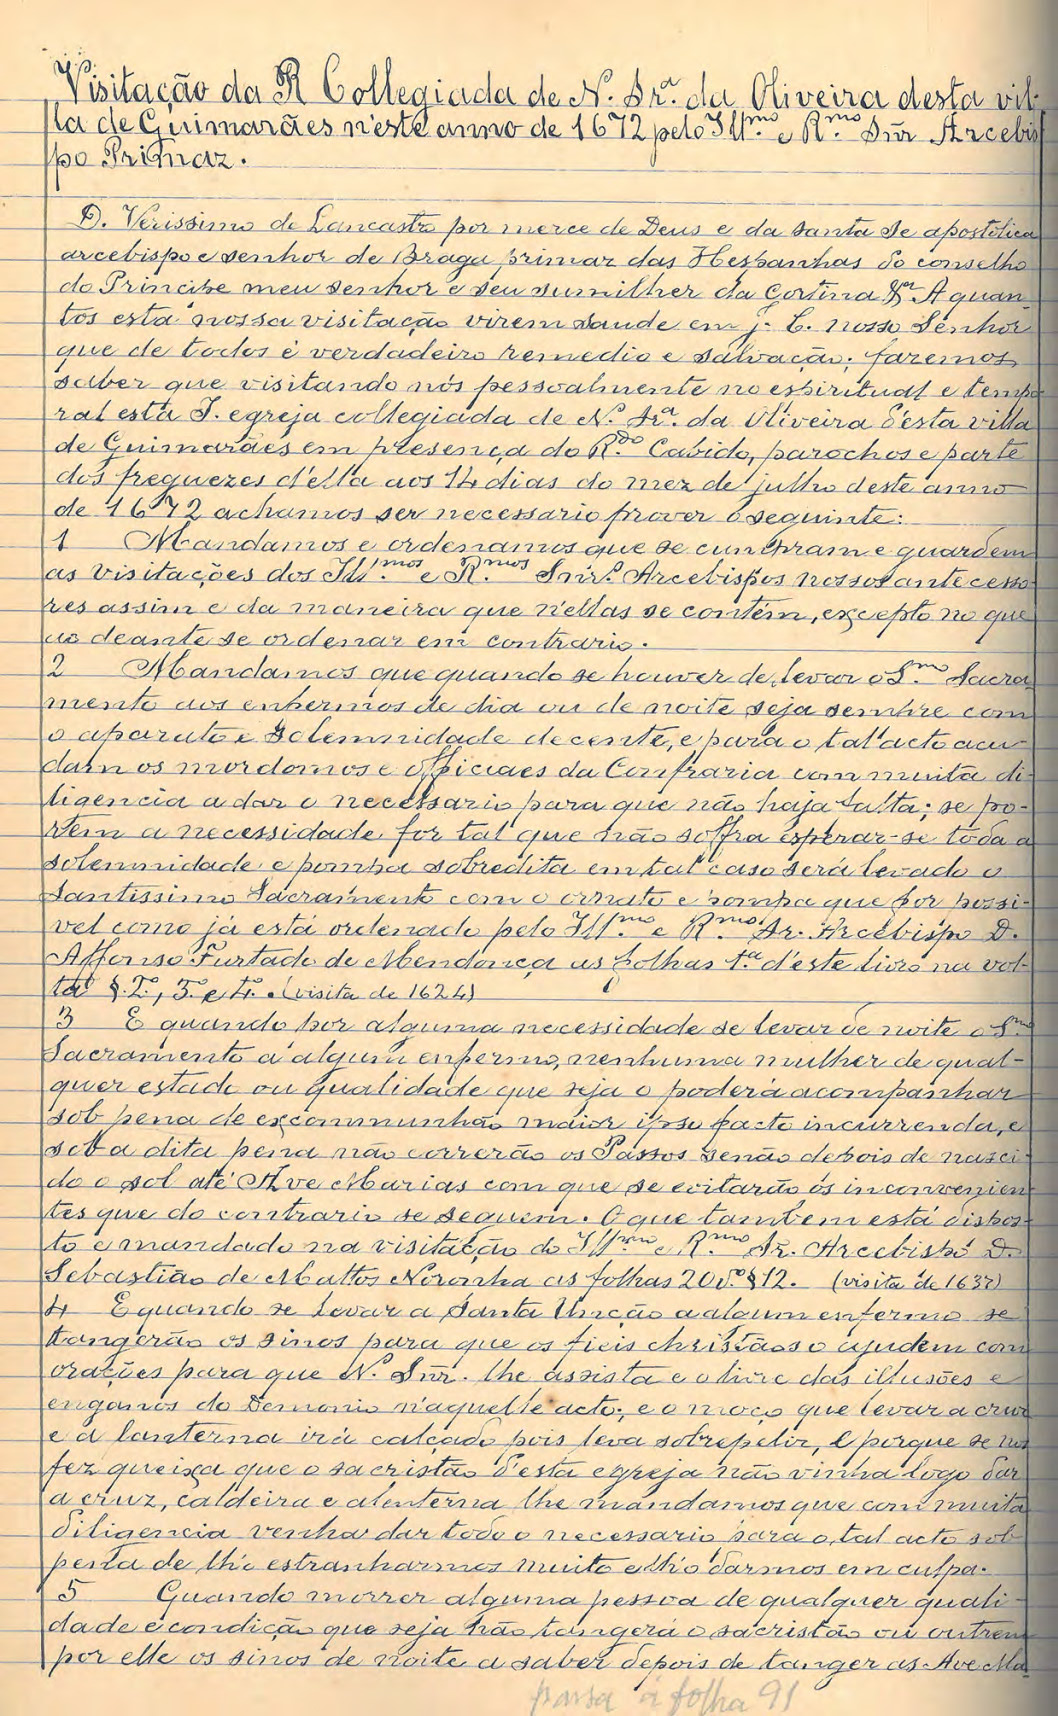 Visitação da R Collegiada de N. Srª. da Oliveira desta vil-
la de Guimarães n'este anno de 1672 pelo Illmo e Rmo Sñr Arcebis
po Primaz.
D. Verissimo de Lancastro por merce de Deus e da santa Se apostolica
arcebispo e senhor de Braga primaz das Hespanhas do conselho
do Principe meu senhor e seu sumilher da Cortina &ª A quan
tos esta nossa visitação virem saude em J. C. nosso Senhor
que de todos é verdadeiro remedio e salvação; fazemos
saber que visitando nós pessoalmente no espiritual e tempo
ral esta I. egreja collegiada de N. Srª. da Oliveira d'esta villa
de Guimarães em presença do Rdo Cabido, parochos e parte
dos freguezes d'ella aos 14 dias do mez de julho deste anno
de 1672 achamos ser necessario prover o seguinte:
1 Mandamos e ordenamos que se cumpram e guardem
as visitações dos Illmos e Rmos Snrs Arcebispos nossos antecesso
res assim e da maneira que n'ellas se contém, excepto no que
ao deante se ordenar em contrario.
2 Mandamos que quando se houver de levar o Smo Sacra
mento aos enfermos de dia ou de noite seja sempre com
o aparato e solemnidade decente, e para o tal acto acu-
dam os mordomos e officiaes da Confraria com muita di
ligencia a dar o necessario para que não haja falta; se po-
rem a necessidade for tal que não soffra esperar-se toda a
solemnidade e pompa sobredita em tal caso será levado o
Santissimo Sacramento com o ornato e pompa que for possi-
vel como já está ordenado pelo Illmo e Rmo Sr. Arcebispo D.
Affonso Furtado de Mendonça as folhas 1ª d'este livro na vol-
ta §. 2º, 3º e 4º. (visita de 1624)
3 E quando por alguma necessidade se levar de noite o Smo
Sacramento a algum enfermo, nenhuma mulher de qual-
quer estado ou qualidade que seja o poderá acompanhar
sob pena de excommunhão maior ipso facto incurrenda, e
sob a dita pena não correrão os Passos senão depois de nasci
do o sol até Ave Marias com que se evitarão os inconvenien
tes que do contrario se seguem. O que tambem está dispos-
to e mandado na visitação do Illmo e Rmo Sr. Arcebispo D.
Sebastião de Mattos Noronha as folhas 20 vº § 12. (visita de 1637)
4 E quando se levar a Santa Unção a algum enfermo se
tangerão os sinos para que os fieis christãos o ajudem com
orações para que N. Sñr. lhe assista e o livre das illusões e
enganos do Demonio n'aquelle acto; e o moço que levar a cruz
e a lanterna irá calçado pois leva sobrepeliz, E porque se nos
fez queixa que o sacristão d'esta egreja não vinha logo dar
a cruz, caldeira e alenterna lhe mandamos que com muita
diligencia venha dar todo o necessario para o tal acto sob
pena de lh'o estranharmos muito e lh'o darmos em culpa.
5 Quando morrer alguma pessoa de qualquer quali-
dade e condição que seja não tangerá o sacristão ou outrem
por elle os sinos de noite a saber depois de tanger as Ave Ma
passa á folha 91